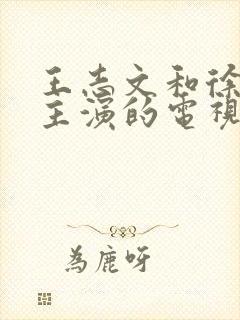 王志文和徐
主演的電視
為鹿呀